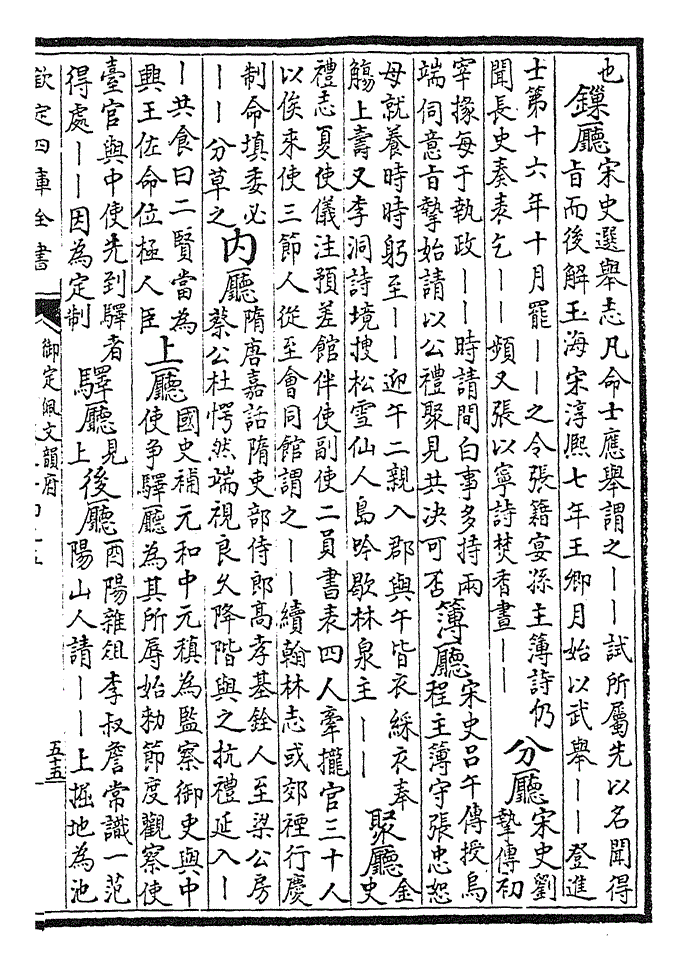 也
鏁廳
宋史選舉志凡命士應舉謂之丨丨試所屬先以名聞得
旨而後解玉海宋淳熙七年王卿月始以武舉丨丨登進
士第十六年十月罷丨丨之令張籍宴孫主簿詩仍
聞長史奏表乞丨丨頻又張以寧詩焚香晝丨丨
分廳
宋史劉
摯傳初
宰掾每于執政丨丨時請間白事多持兩
端伺意旨摯始請以公禮聚見共决可否
簿廳
宋史呂午傳授烏
程主簿守張忠恕
母就養時時躬至丨丨迎午二親入郡與午皆衣綵衣奉
觴上壽又李洞詩境搜松雪仙人島吟歇林泉主丨丨
聚廳
金
史
禮志夏使儀注預差館伴使副使二員書表四人牽攏官三十人
以俟來使三節人從至會同館謂之丨丨續翰林志或郊禋行慶
制命填委必
丨丨分草之
內廳
隋唐嘉話隋吏部侍郎髙孝基銓人至梁公房
蔡公杜愕然端視良久降階與之抗禮延入丨
丨共食曰二賢當為
興王佐命位極人臣
上廳
國史補元和中元稹為監察御史與中
使争驛廳為其所辱始勅節度觀察使
臺官與中使先到驛者
得處丨丨因為定制
驛廳
見
上
後廳
酉陽雜俎李叔詹常識一范
陽山人請丨丨上掘地為池
欽定四庫全書
御定佩文韻府
五十五